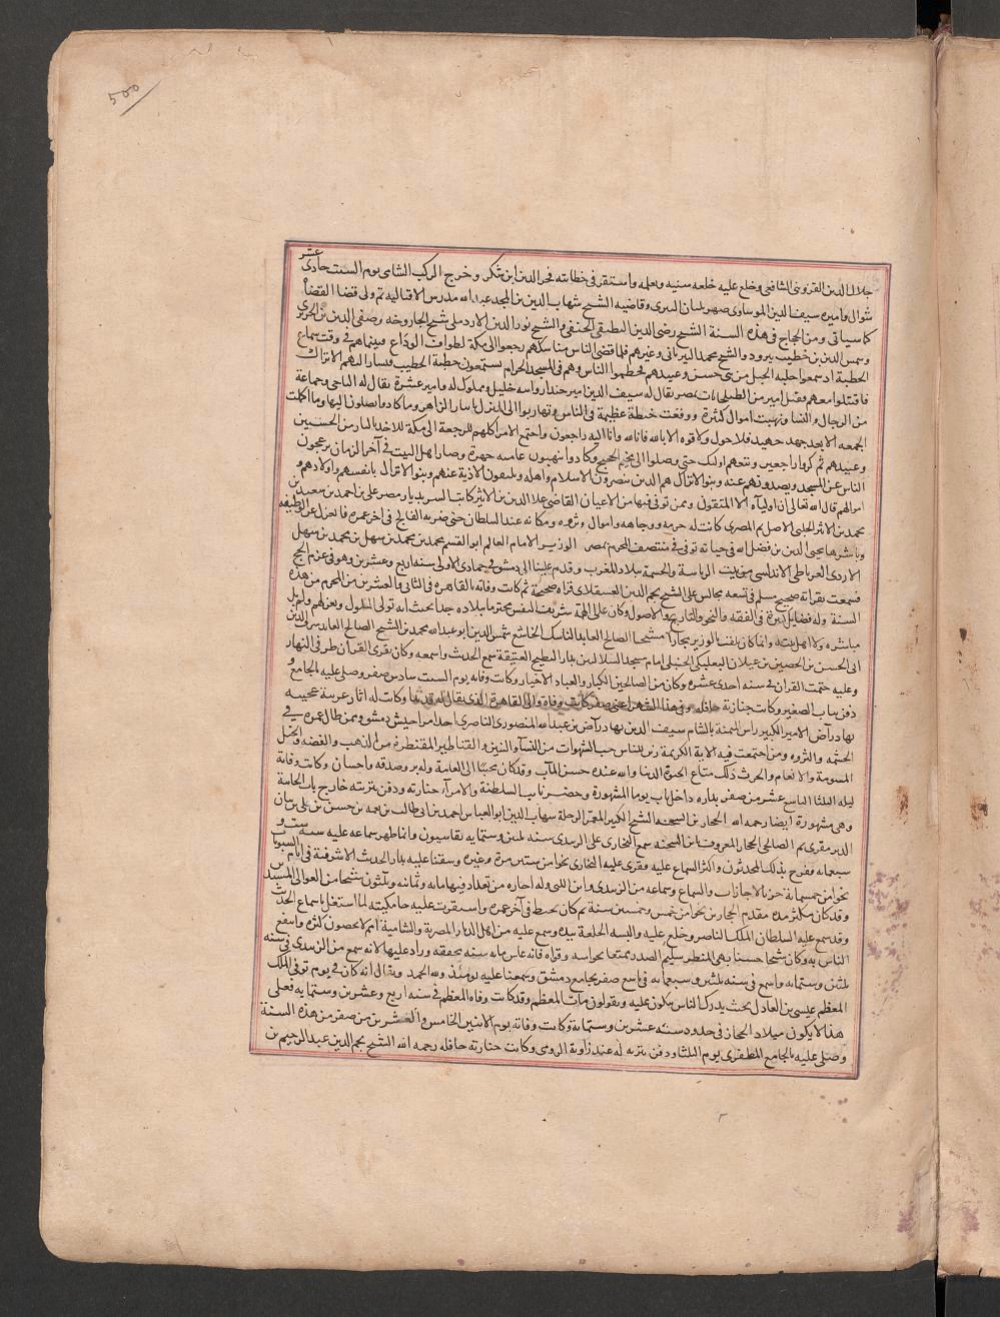 500
عشر
جلال الدين القزوينى الشافعى وخلع عليه خلعه سنيه وبغله واستقر فى خطابته فخر الدين ابن شكر وخرج الركب الشامى يوم السبت حادى
شوال واميره سيف الدين الموساوى صهر بلبان البيرى وقاضيه الشيخ شهاب الدين بن المجد عبد الله مدرس الاقباليه ثم ولى قضا القضاة
كما سياتى ومن الحجاج فى هذه السنة الشيخ رضى الدين المنطيقى الحنفى والشيخ نور الدين الاردبيلى شيخ الجاروخيه وصفى الدين بن الحريرى
وشمس الدين بن خطيب بيرود والشيخ محمد النيربانى وغيرهم فلما قضى الناس مناسكهم رجعوا الى مكة لطواف الوداع فبينما هم فى وقت سماع
الخطبة اذ سمعوا جلبه الخيل من بنى حسن وعبيدهم قد حطموا الناس وهم فى المسجد الحرام يستمعون خطبة الخطيب فسار اليهم الاتراك
فاقتتلوا معهم فقتل امير من الطبلخانات بمصر يقال له سيف الدين امير جندار وابنه خليل ومملوك له وامير عشرة يقال له الباجى وجماعة
من الرجال والنسا ونهبت اموال كثيرة ووقعت خبطة عظيمة فى الناس وتهاربوا الى المنزل بابيار الزاهر وما كادوا يصلون اليها وما اكملت
الجمعه الا بعد جهد جهيد فلا حول ولا قوه الا بالله فانا لله وانا اليه راجعون واجتمع الامرا كلهم للرجعة الى مكة للاخذ بالثار من الحسنيين
وعبيدهم ثم كروا راجعين وتبعهم اولئك حتى وصلوا الى مخيم الحجيج وكادوا ينهبون عامه جهرة وصار اهل البيت فى آخر الزمان يزعجون
الناس عن المسجد ويصدونهم عنه وبنو الاتراك هم الذين ينصرون الاسلام واهله ويكفون الاذية عنهم وبنو الاتراك بانفسهم واولادهم
اموالهم قال الله تعالى ان اولياؤه الا المتقون وممن توفى فيها من الاعيان القاضى علا الدين بن الاثير كاتب السر بديار مصر على بن احمد بن سعيد بن
محمد بن الاثير الحلبى الاصل ثم المصرى كانت له حرمه ووجاهه واموال وثروه ومكانه عند السلطان حتى ضربه الفالج فى آخر عمره فانعزل عن الوظيفه
وباشرها محيى الدين بن فضل الله فى حياته توفى فى منتصف المحرم بمصر الوزير الامام العالم ابو القسم محمد بن محمد بن سهل بن محمد بن سهل
الازدى الغرناطى الاندلسى من بيت الرياسة والحشمة ببلاد المغرب وقدم علينا الى دمشق فى جمادى الاولى سنه اربع وعشرين وهو فى عزم الحج
فسمعت بقراته صحيح مسلم فى تسعه مجالس على الشيخ نجم الدين العسقلانى قراة صحيحة ثم كانت وفاته بالقاهره فى الثانى والعشرين من المحرم من هذه
السنة وله فضايل كثيرة فى الفقه والنحو والتاريخ والاصول وكان على الهمة شريف النفس محترما ببلاده جدا بحيث انه تولى الملوك ويعزلهم ولم يل
مباشره ولا اهل بيته وانما كان يلقب بالوزير مجازا شيخنا الصالح العابد الناسك الخاشع شمس الدين ابو عبد الله محمد بن الشيخ الصالح العابد شرف الدين
ابى الحسن بن الحسين بن غيلان البعلبكى الحنبلى امام مسجد السلالين بدار البطيخ العتيقة سمع الحديث واسمعه وكان يقرئ القران طرفى النهار
وعليه ختمت القران فى سنه احدى عشره وكان من الصالحين الكبار والعباد الاخيار وكانت وفاته يوم السبت سادس صفر وصلى عليه بالجامع و
دفن بباب الصغير وكانت جنازته حافلة وفى هذا الشهر اعنى صفر كانت وفاة والى القاهرة الذى يقال له قديدار وكانت له اثار غريبة عجيبه
بهادر آص الامير الكبير راس الميمنة بالشام سيف الدين بهادر آص بن عبد الله المنصورى الناصرى احد امرا جيش دمشق وممن طال عمره فى
الحشمه والثروه وممن اجتمعت فيه الاية الكريمة زين للناس حب الشهوات من النسا والبنين والقناطير المقنطرة من الذهب والفضه والخيل
المسومة والانعام والحرث ذلك متاع الحيوة الدنيا والله عنده حسن المآب وقد كان محببا الى العامة وله بر وصدقه واحسان وكانت وفاته
ليله الثلثا التاسع عشر من صفر بداره داخل باب توما المشهورة وحضر نايب السلطنة والامرآء جنازته ودفن بتربته خارج باب الجابية
وهى مشهورة ايضا رحمه الله الحجار بن الشحنه الشيخ الكبير المعمر الرحلة شهاب الدين ابو العباس احمد بن ابى طالب بن نعمه بن حسن بن على بن بيان
الدير مقرنى ثم الصالحى الحجار المعروف بابن الشحنه سمع البخارى على الزبيدى سنه ثلثين وستمايه بقاسيون وانما ظهر سماعه عليه سنه ست و
سبعمايه ففرح بذلك المحدثون واكثروا السماع عليه وقرئ عليه البخارى نحوا من ستين مرة وغيره وسمعنا عليه بدار الحديث الاشرفية فى ايام الشتويات
نحوا من خمسمايه جزء بالاجازات والسماع وسماعه من الزبيدى وابن اللتى وله اجازه من بغداد فيها مايه وثمانيه وثلثون شيخا من العوالى المسندين
وقد مكث مدة مقدم الحجارين نحوا من خمس وعشرين سنة ثم كان يخيط فى آخر عمره واستقرت عليه جامكيته لما اشتغل باسماع الحديث
وقد سمع عليه السلطان الملك الناصر وخلع عليه والبسه الخلعة بيده وسمع عليه من اهل الديار المصرية والشامية امم لا يحصون كثرة وانتفع
الناس به وكان شيخا حسنا بهى المنظر سليم الصدر ممتعا بحواسه وقواه فانه عاش مايه سنه محققه وزاد عليها لانه سمع من الزبيدى فى سنه
ثلثين وستمايه واسمع فى سنه ثلثين وسبعمايه فى تاسع صفر بجامع دمشق وسمعنا عليه يومئذ ولله الحمد ويقال انه كان فى يوم توفى الملك
المعظم عيسى بن العادل بحيث يدرك الناس يبكون عليه ويقولون مات المعظم وقد كانت وفاة المعظم فى سنه اربع وعشرين وستمايه فعلى
هذا الا يكون ميلاد الحجار فى حدود سنه عشرين وستمايه وكانت وفاته يوم الاثنين الخامس والعشرين من صفر من هذه السنة
وصلى عليه بالجامع المظفرى يوم الثلثا ودفن بتربه له عند زاوية الرومى وكانت جنازته حافله رحمه الله الشيخ نجم الدين عبد الرحيم بن